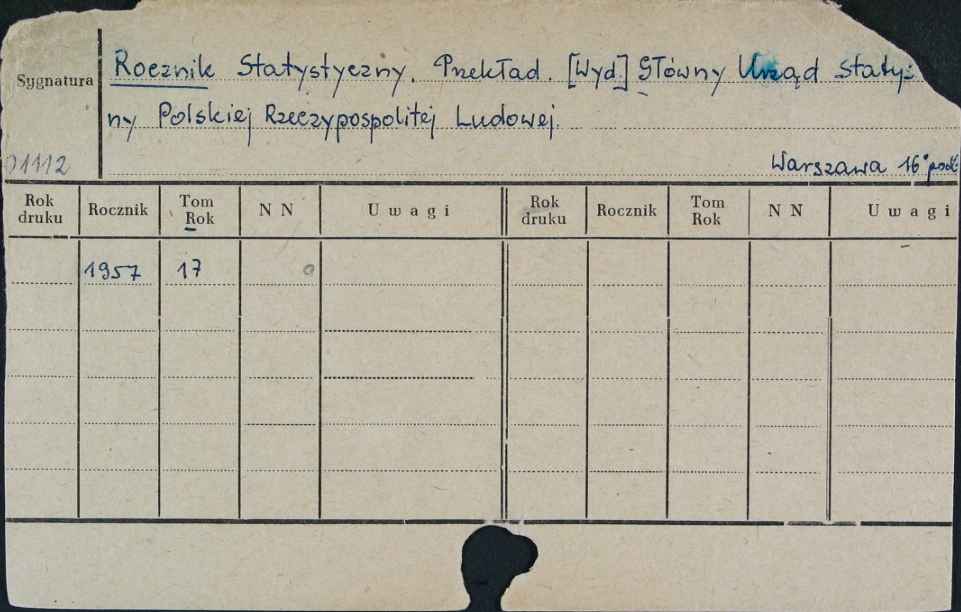 Rocznik Statystyczny. Przekład. [Wyd.] Główny Urząd Staty-
Sygnatura
ny Polskiej Rzeczypospolitej Ludowej.
01112
Warszawa 16°
Rok druku Rocznik Tom Rok N N Uwagi Rok druku Rocznik Tom Rok N N Uwagi
1957 17